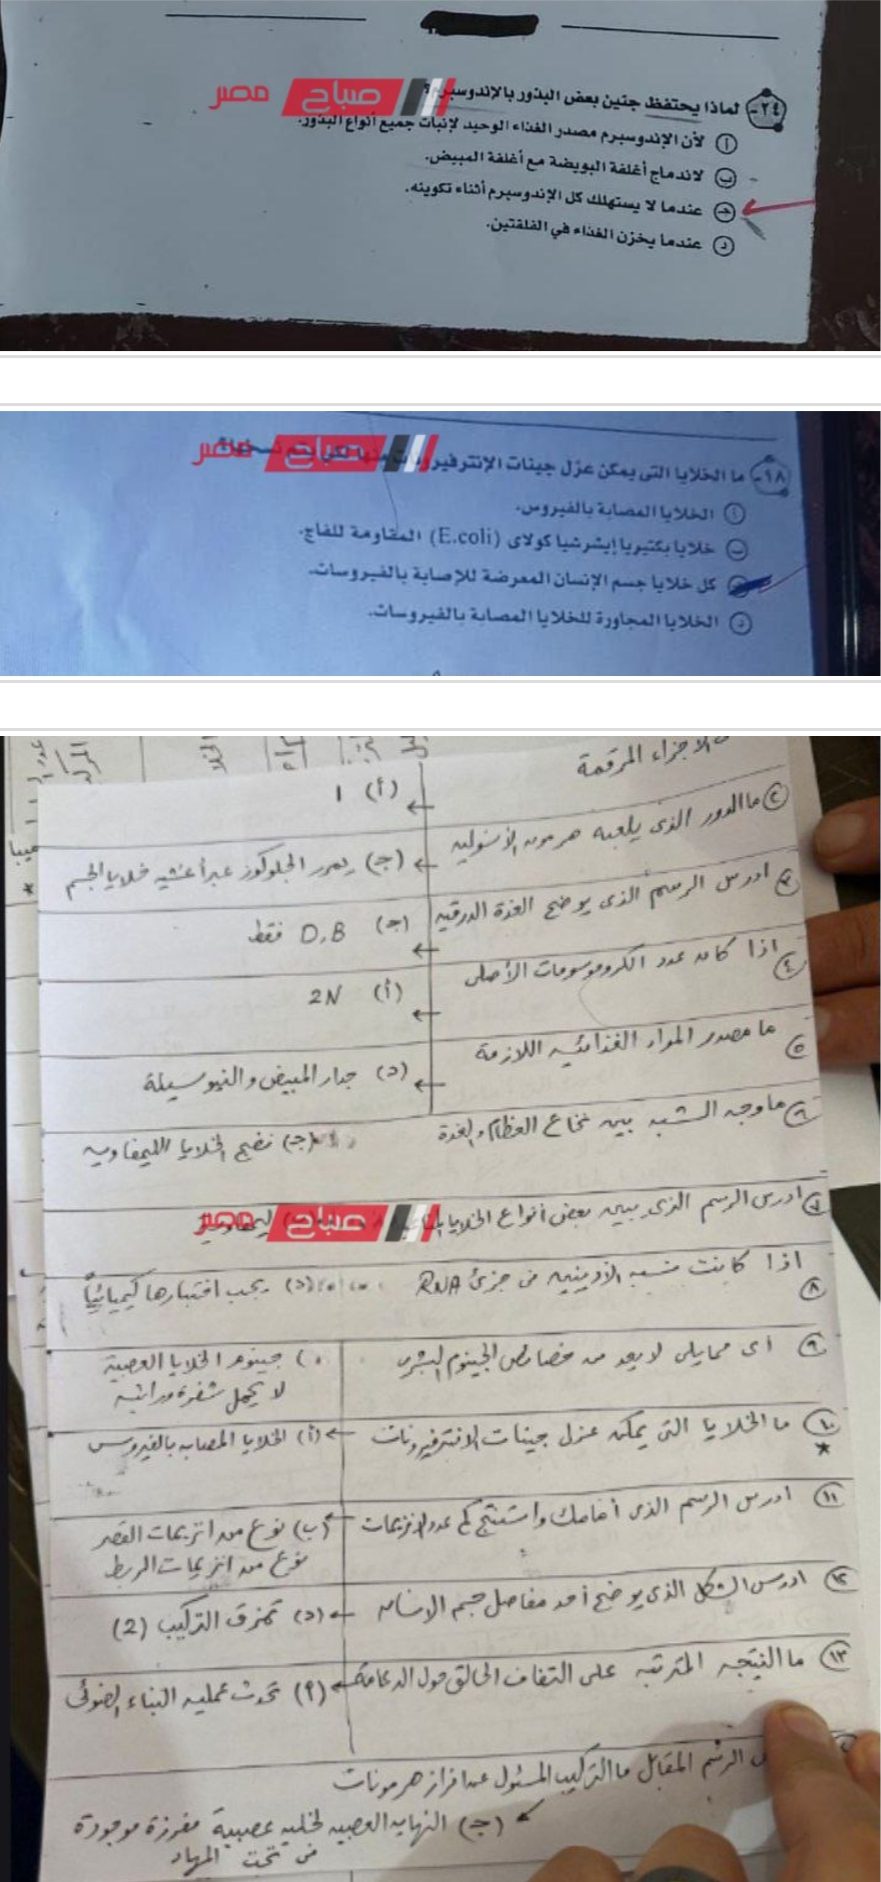 ٢٤- لماذا يحتفظ جنين بعض البذور بالإندوسبرم؟
صباح مصر
أ لأن الإندوسبرم مصدر الغذاء الوحيد لإنبات جميع أنواع البذور.
ب لاندماج أغلفة البويضة مع أغلفة المبيض.
ج عندما لا يستهلك كل الإندوسبرم أثناء تكوينه.
د عندما يخزن الغذاء في الفلقتين.
١٨- ما الخلايا التى يمكن عزل جينات الإنترفيرونات منها
صباح مصر
أ الخلايا المصابة بالفيروس.
ب خلايا بكتيريا إيشرشيا كولاى (E.coli) المقاومة للفاج.
ج كل خلايا جسم الإنسان المعرضة للإصابة بالفيروسات.
د الخلايا المجاورة للخلايا المصابة بالفيروسات.
الاجزاء المرقمة
(أ) 1
٢ ما الدور الذى يلعبه هرمون الأنسولين
(ج) يمرر الجلوكوز عبر أغشيه خلايا الجسم
٣ ادرس الرسم الذى يوضح الغدة الدرقيه
(ج) D,B فقط
٤ اذا كان عدد الكروموسومات الأصلى
(أ) 2N
٥ ما مصدر المواد الغذائيه اللازمة
(د) جدار المبيض والنيوسيلة
٦ ما وجه الشبه بين نخاع العظام والغدة
(ج) نضج الخلايا الليمفاويه
٧ ادرس الرسم الذى يبين بعض أنواع الخلايا
صباح مصر
٨ اذا كانت نسبه الأدينين فى جزئ RNA
(د) يجب اختبارها كيميائياً
٩ اى ممايلى لا يعد من خصائص الجينوم البشرى
) جينوم الخلايا العصبية
لا يحمل شفرة وراثيه
١٠ ما الخلايا التى يمكن عزل جينات الانترفيرونات
(أ) الخلايا المصابه بالفيروس
١١ ادرس الرسم الذى أمامك واستنتج كم عدد الانزيمات
(ب) نوع من انزيمات القصر
نوع من انزيمات الربط
١٢ ادرس الشكل الذى يوضح أحد مفاصل جسم الانسان
(د) تمزق التركيب (2)
١٣ ما النتيجه المترتبه على التفاف الحالق حول الدعامة
(أ) تحدث عمليه البناء الضوئى
الرسم المقابل ما التركيب المسئول عن افراز هرمونات
(ج) النهايه العصبيه لخليه عصبية مفرزة موجودة
فى تحت المهاد